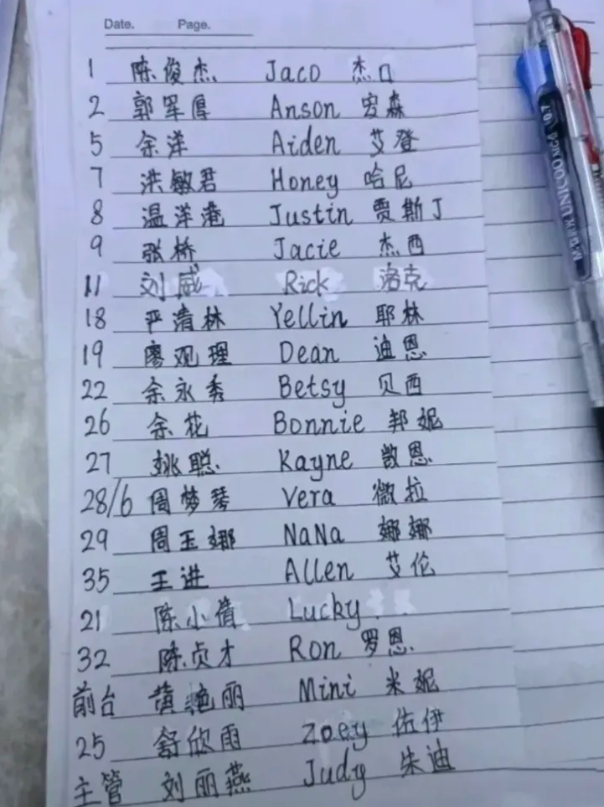 Date. Page.
1 陈俊杰 Jaco 杰口
2 郭军厚 Anson 安森
5 余洋 Aiden 艾登
7 洪敏君 Honey 哈尼
8 温洋港 Justin 贾斯丁
9 张桥 Jacie 杰西
11 刘威 Rick 洛克
18 严清林 Yellin 耶林
19 廖观理 Dean 迪恩
22 余永秀 Betsy 贝西
26 余花 Bonnie 邦妮
27 姚聪 Kayne 凯恩
28/6 周梦琴 Vera 微拉
29 周玉娜 NaNa 娜娜
35 王进 Allen 艾伦
21 陈小倩 Lucky
32 陈贞才 Ron 罗恩
前台 黄艳丽 Mini 米妮
25 舒欣雨 Zoey 佐伊
主管 刘丽燕 Judy 朱迪